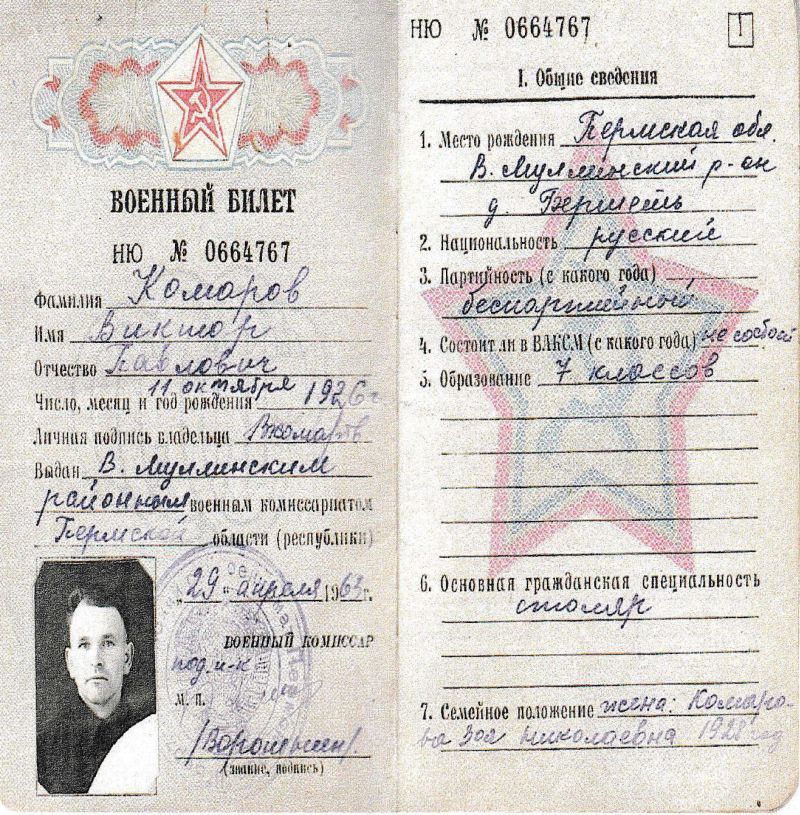 ВОЕННЫЙ БИЛЕТ
НЮ № 0664767
Фамилия Комаров
Имя Виктор
Отчество Павлович
Число, месяц и год рождения 11 октября 1926 г
Личная подпись владельца ВКомаров
Выдан В. Муллинским
районным военным комиссариатом
Пермской области (республики)
"29" апреля 1963 г.
ВОЕННЫЙ КОМИССАР
подп-к
М. П.
(звание, подпись)
НЮ № 0664767
1
I. Общие сведения
1. Место рождения Пермская обл.
В. Муллинский р-он
д. Бершеть
2. Национальность русский
3. Партийность (с какого года)
беспартийный
4. Состоит ли в ВЛКСМ (с какого года) не состоит
5. Образование 7 классов
6. Основная гражданская специальность
столяр
7. Семейное положение жена: Комаро-
ва Зоя Николаевна 1928 год